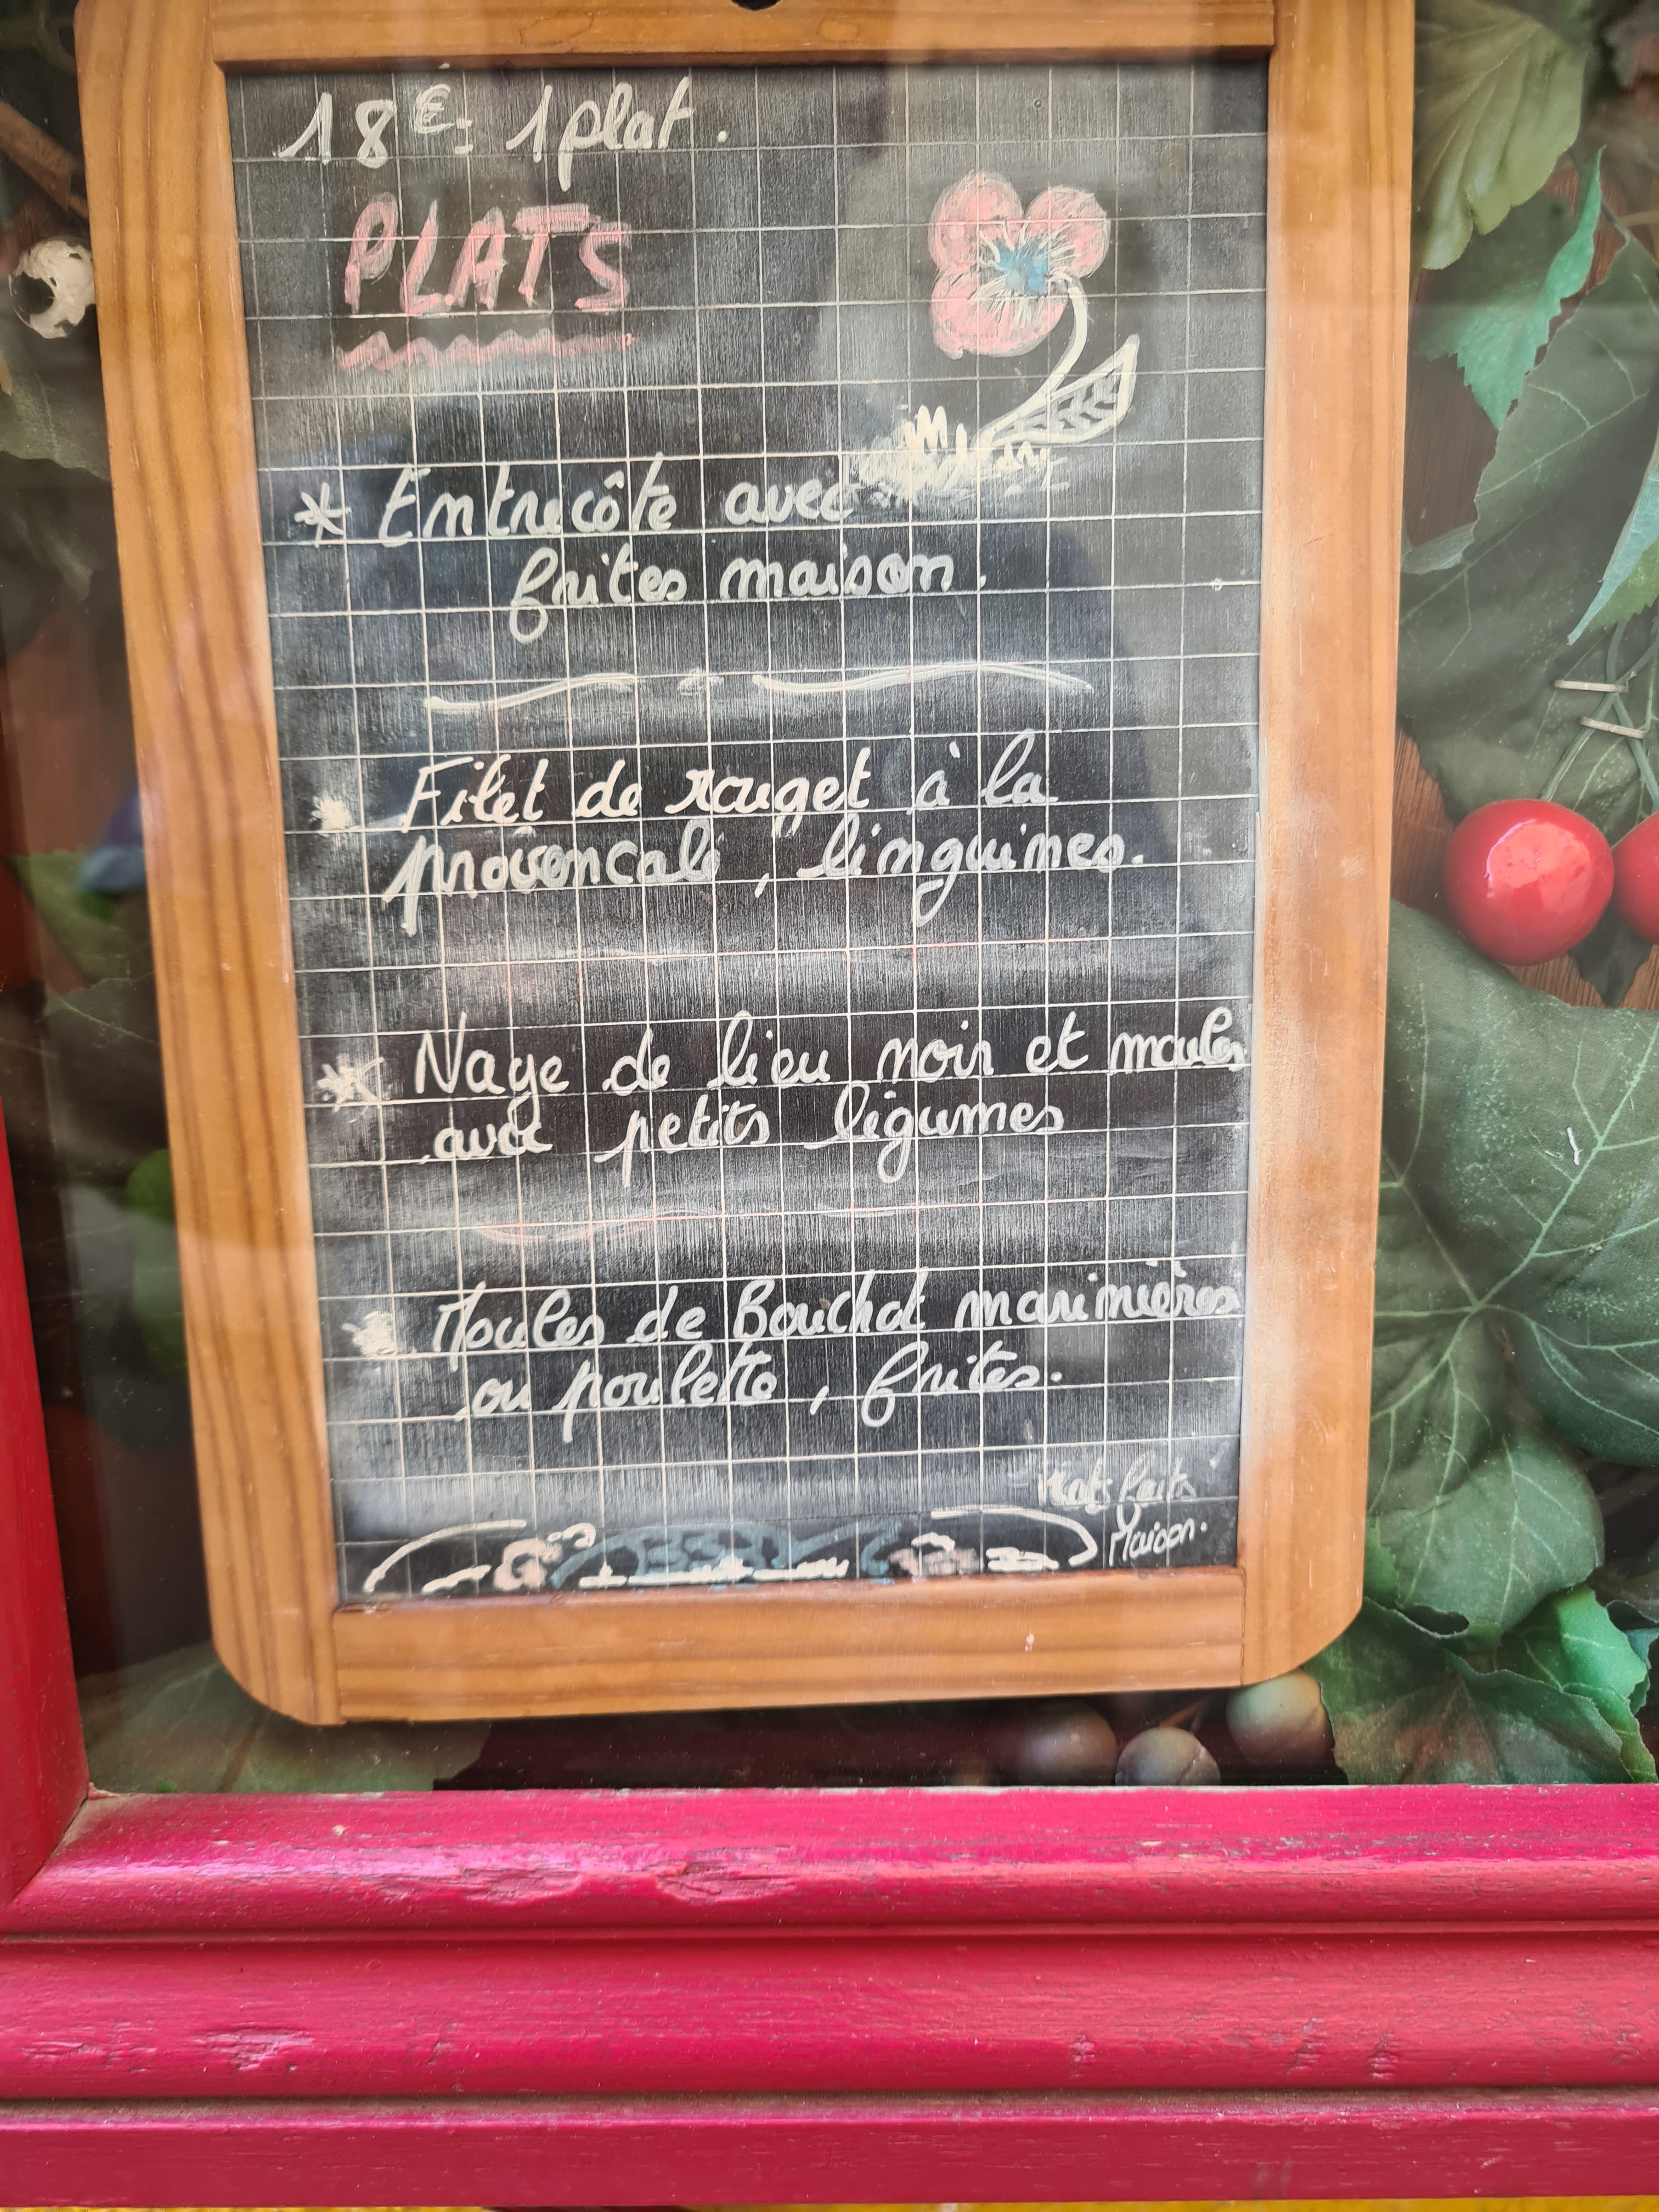 18€: 1 plat.
PLATS
* Entrecôte avec
frites maison.
* Filet de rouget à la
provençale, linguines.
* Nage de lieu noir et moules
avec petits légumes
* Moules de Bouchot marinières
ou poulette, frites.
Plats faits
Maison.